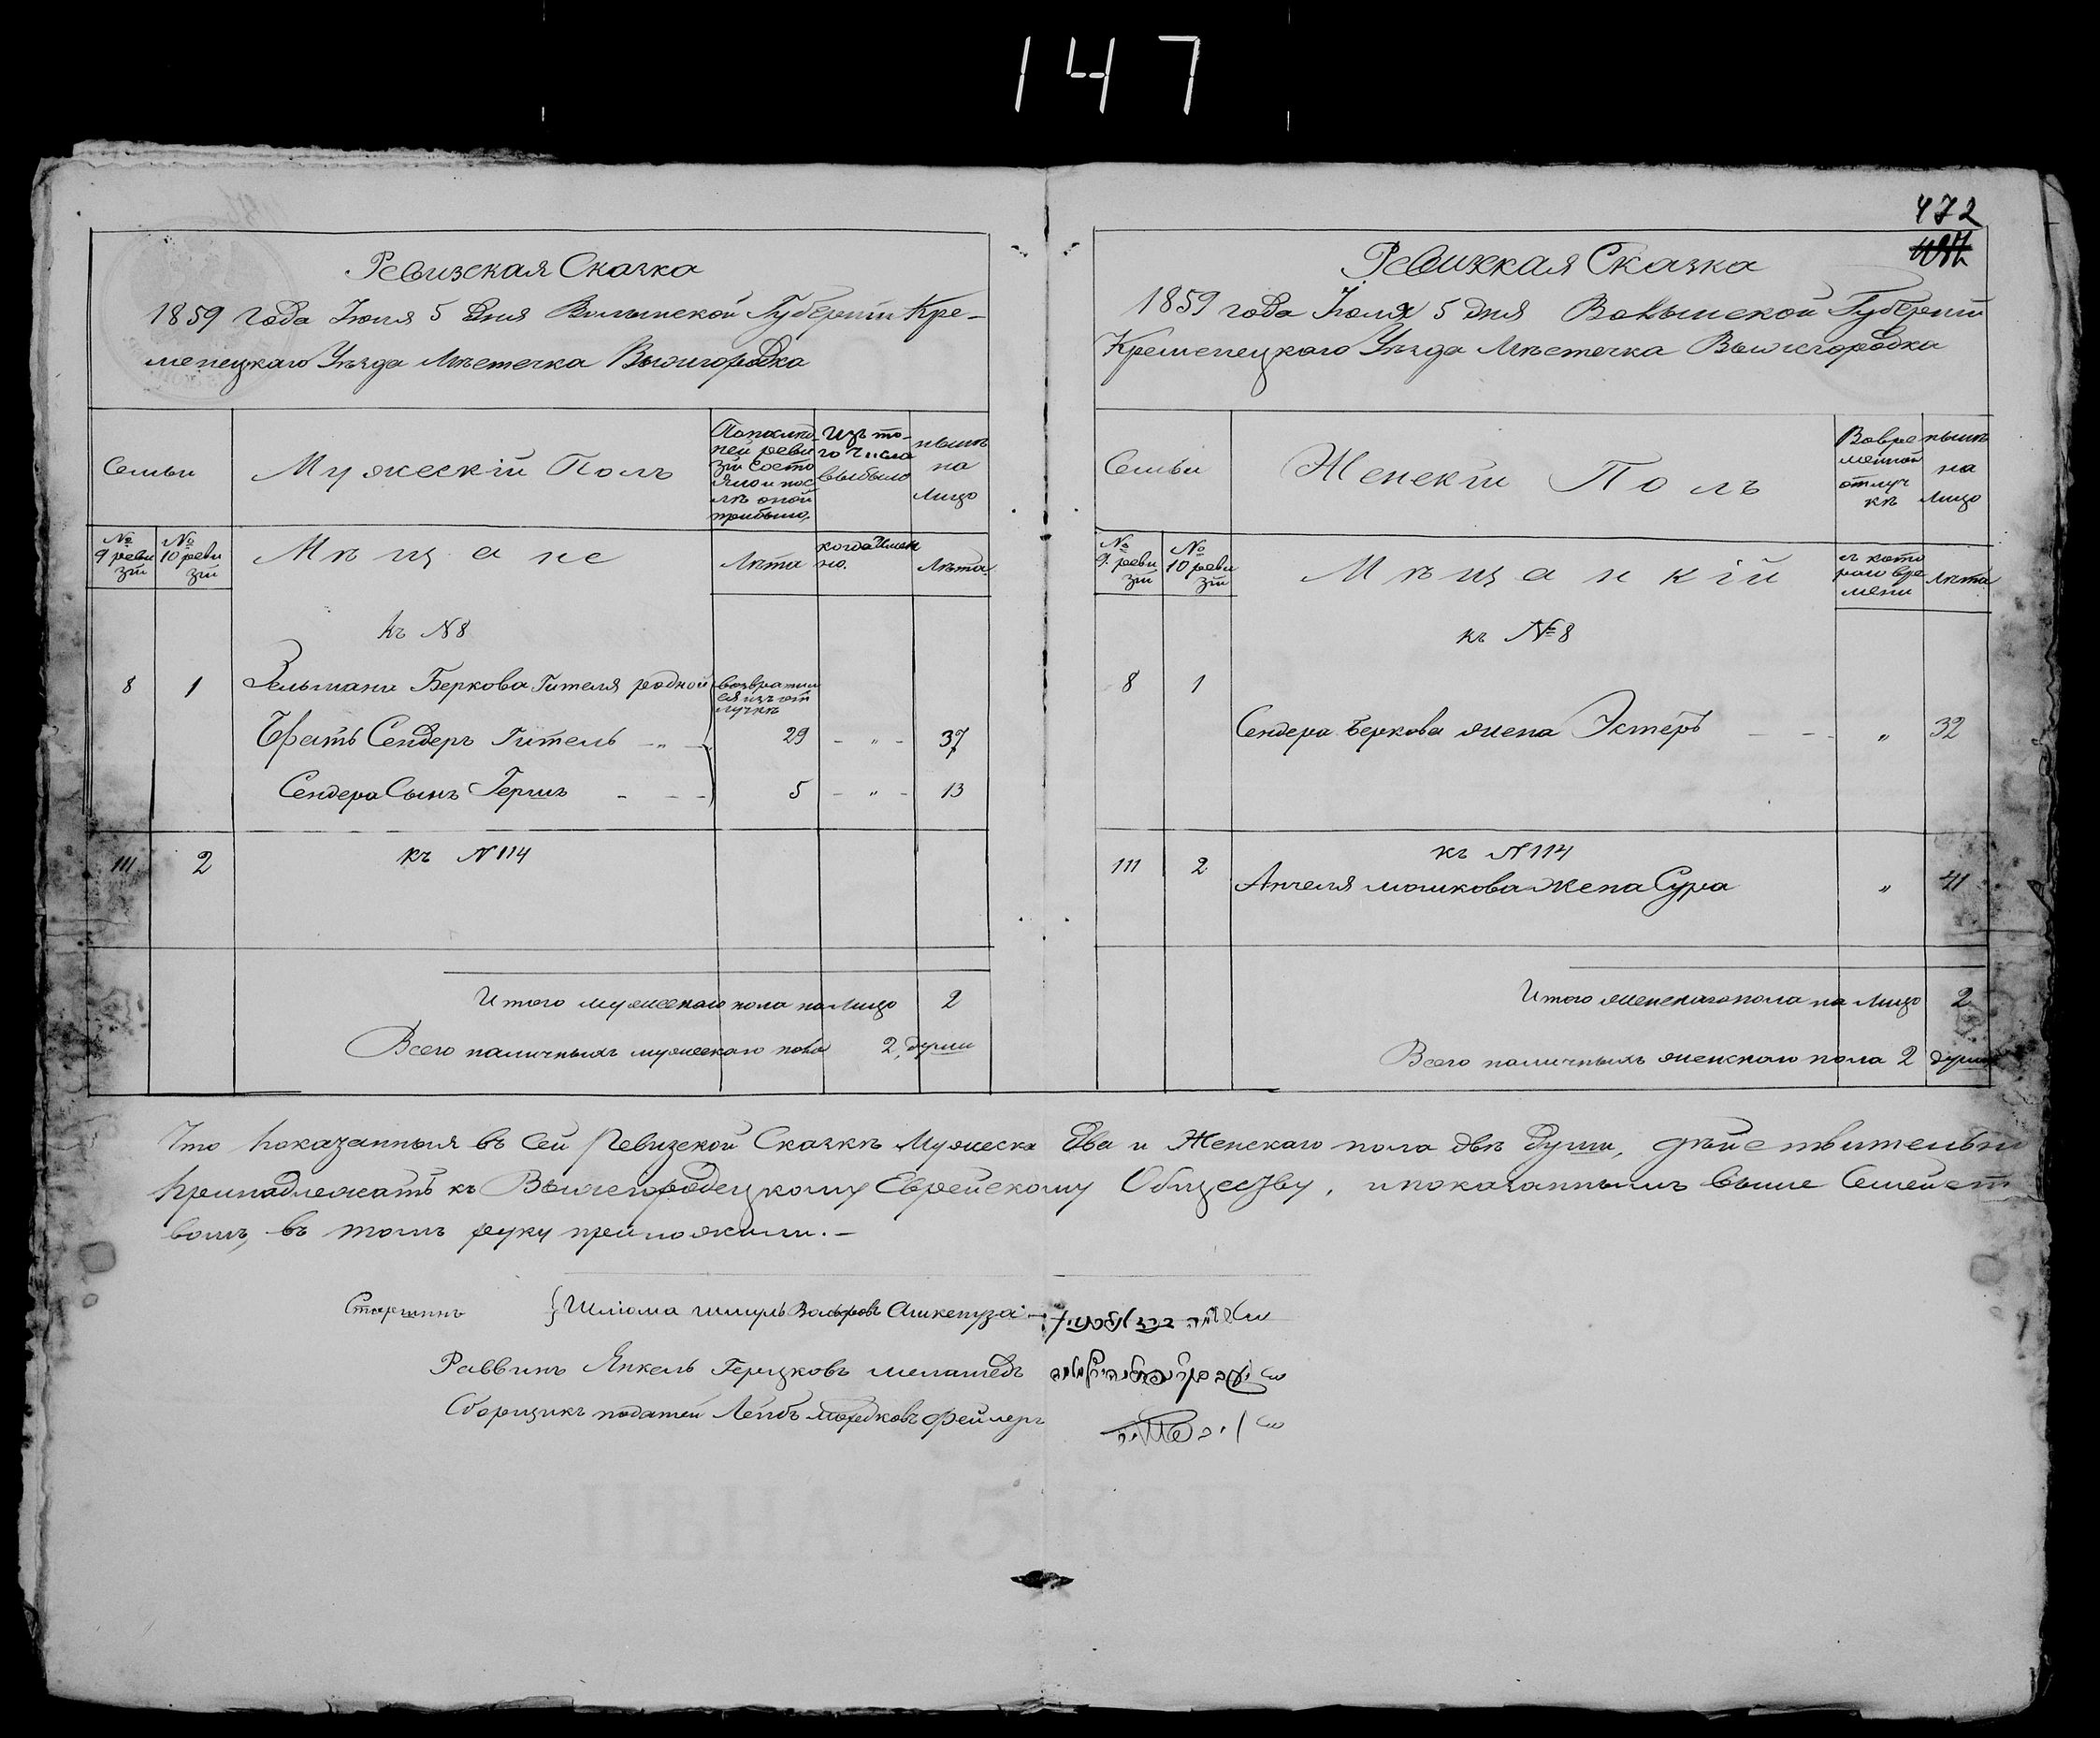 147
472
Ревизская Сказка
1859 года Июля 5 дня Волынской Губернiи Кре-
менецкаго Уѣзда Мѣстечка Вышгородка
Семьи
Мужескiй Полъ
По послѣд-
ней реви
зiи состо
яло и пос
лѣ оной
прибыло,
Изъ то-
го числа
выбыло
нынѣ
на
лицо
№ 9 ревизiи
№ 10 ревизiи
Мѣщане
Лѣта
когда имен
но.
Лѣта.
къ N 8
8 1 Зельмана Беркова Гителя родной возвратил
ся изъ от
лучки
Братъ Сендеръ Гитель - " - 29 - " - 37
Сендера Сынъ Гершъ - - - 5 - " - 13
111 2 къ N 114
Итого мужескаго пола на лицо 2
Всего наличныхъ мужескаго пола 2, души
Ревизкая Сказка
1859 года Июля 5 дня Волынской Губернiи
Кременецкаго Уѣзда Мѣстечка Вышегородка
Семьи
Женскiй Полъ
Во вре
менной
отлуч
кѣ
нынѣ
на
лицо
№ 9. ревизiи
№ 10 ревизiи
Мѣщанкiй
съ кото
раго вре
мени
лѣта
къ № 8
8 1
Сендера Беркова жена Эстеръ - - - " 32
къ N 114
111 2
Анчеля мошкова жена Сура " 41
Итого женскаго пола на лицо 2
Всего наличныхъ женскаго пола 2 души
Что показанныя въ сей Ревизской Сказкѣ Мужеска два и Женскаго пола двѣ души, дѣйствительно
принадлежатъ къ Вышегородецкому Еврейскому Обществу, и показаннымъ выше Семейст
вомъ, въ томъ руку приложили. -
Старшинъ { Шлiома шмуль Вольфовъ Ашкенуза
Раввинъ Янкель Герцковъ меламедъ
Сборщикъ податей Лейбъ Мордковъ Фейлеръ